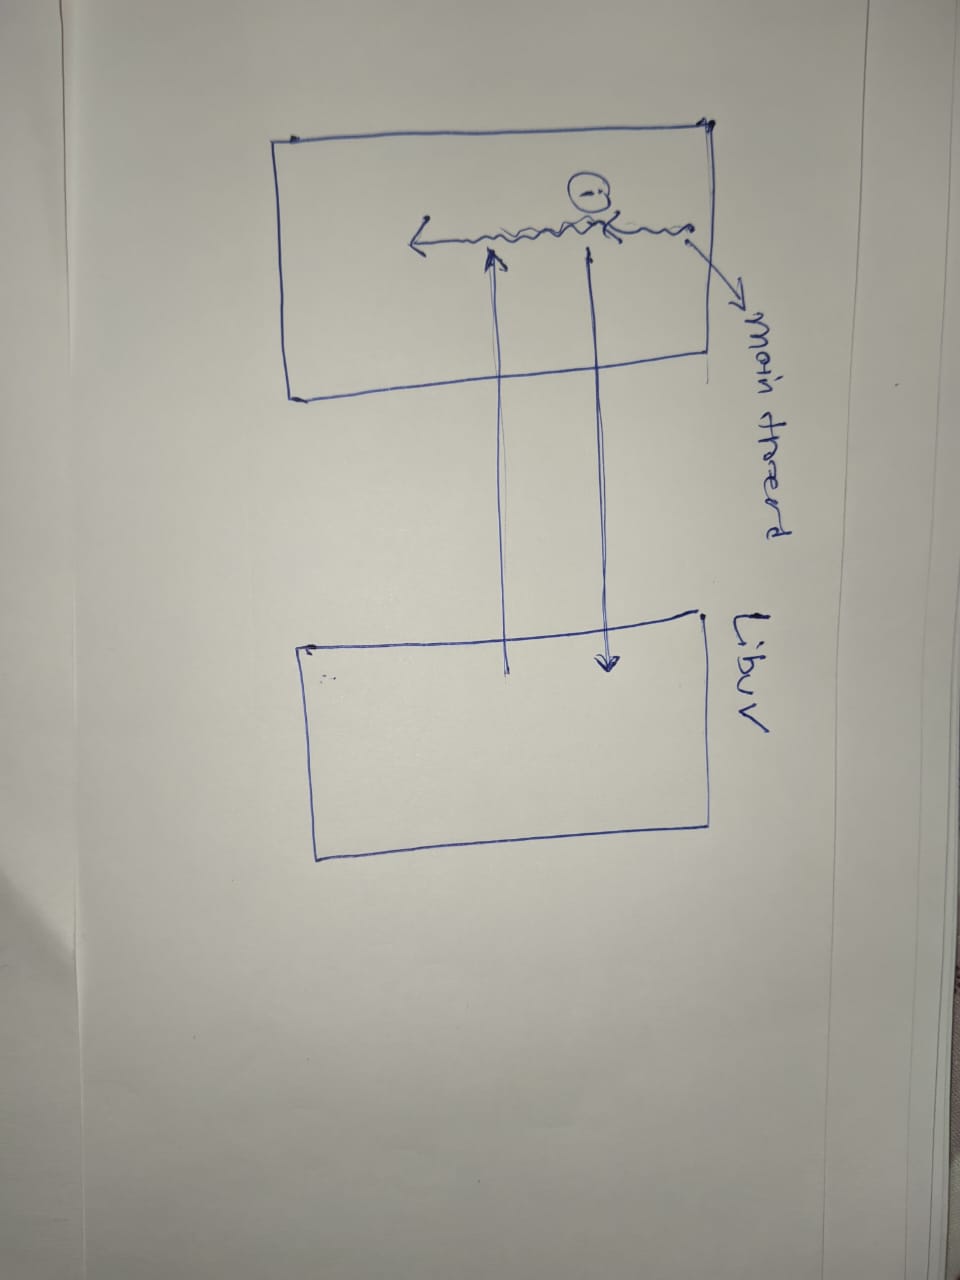 main thread
Libuv